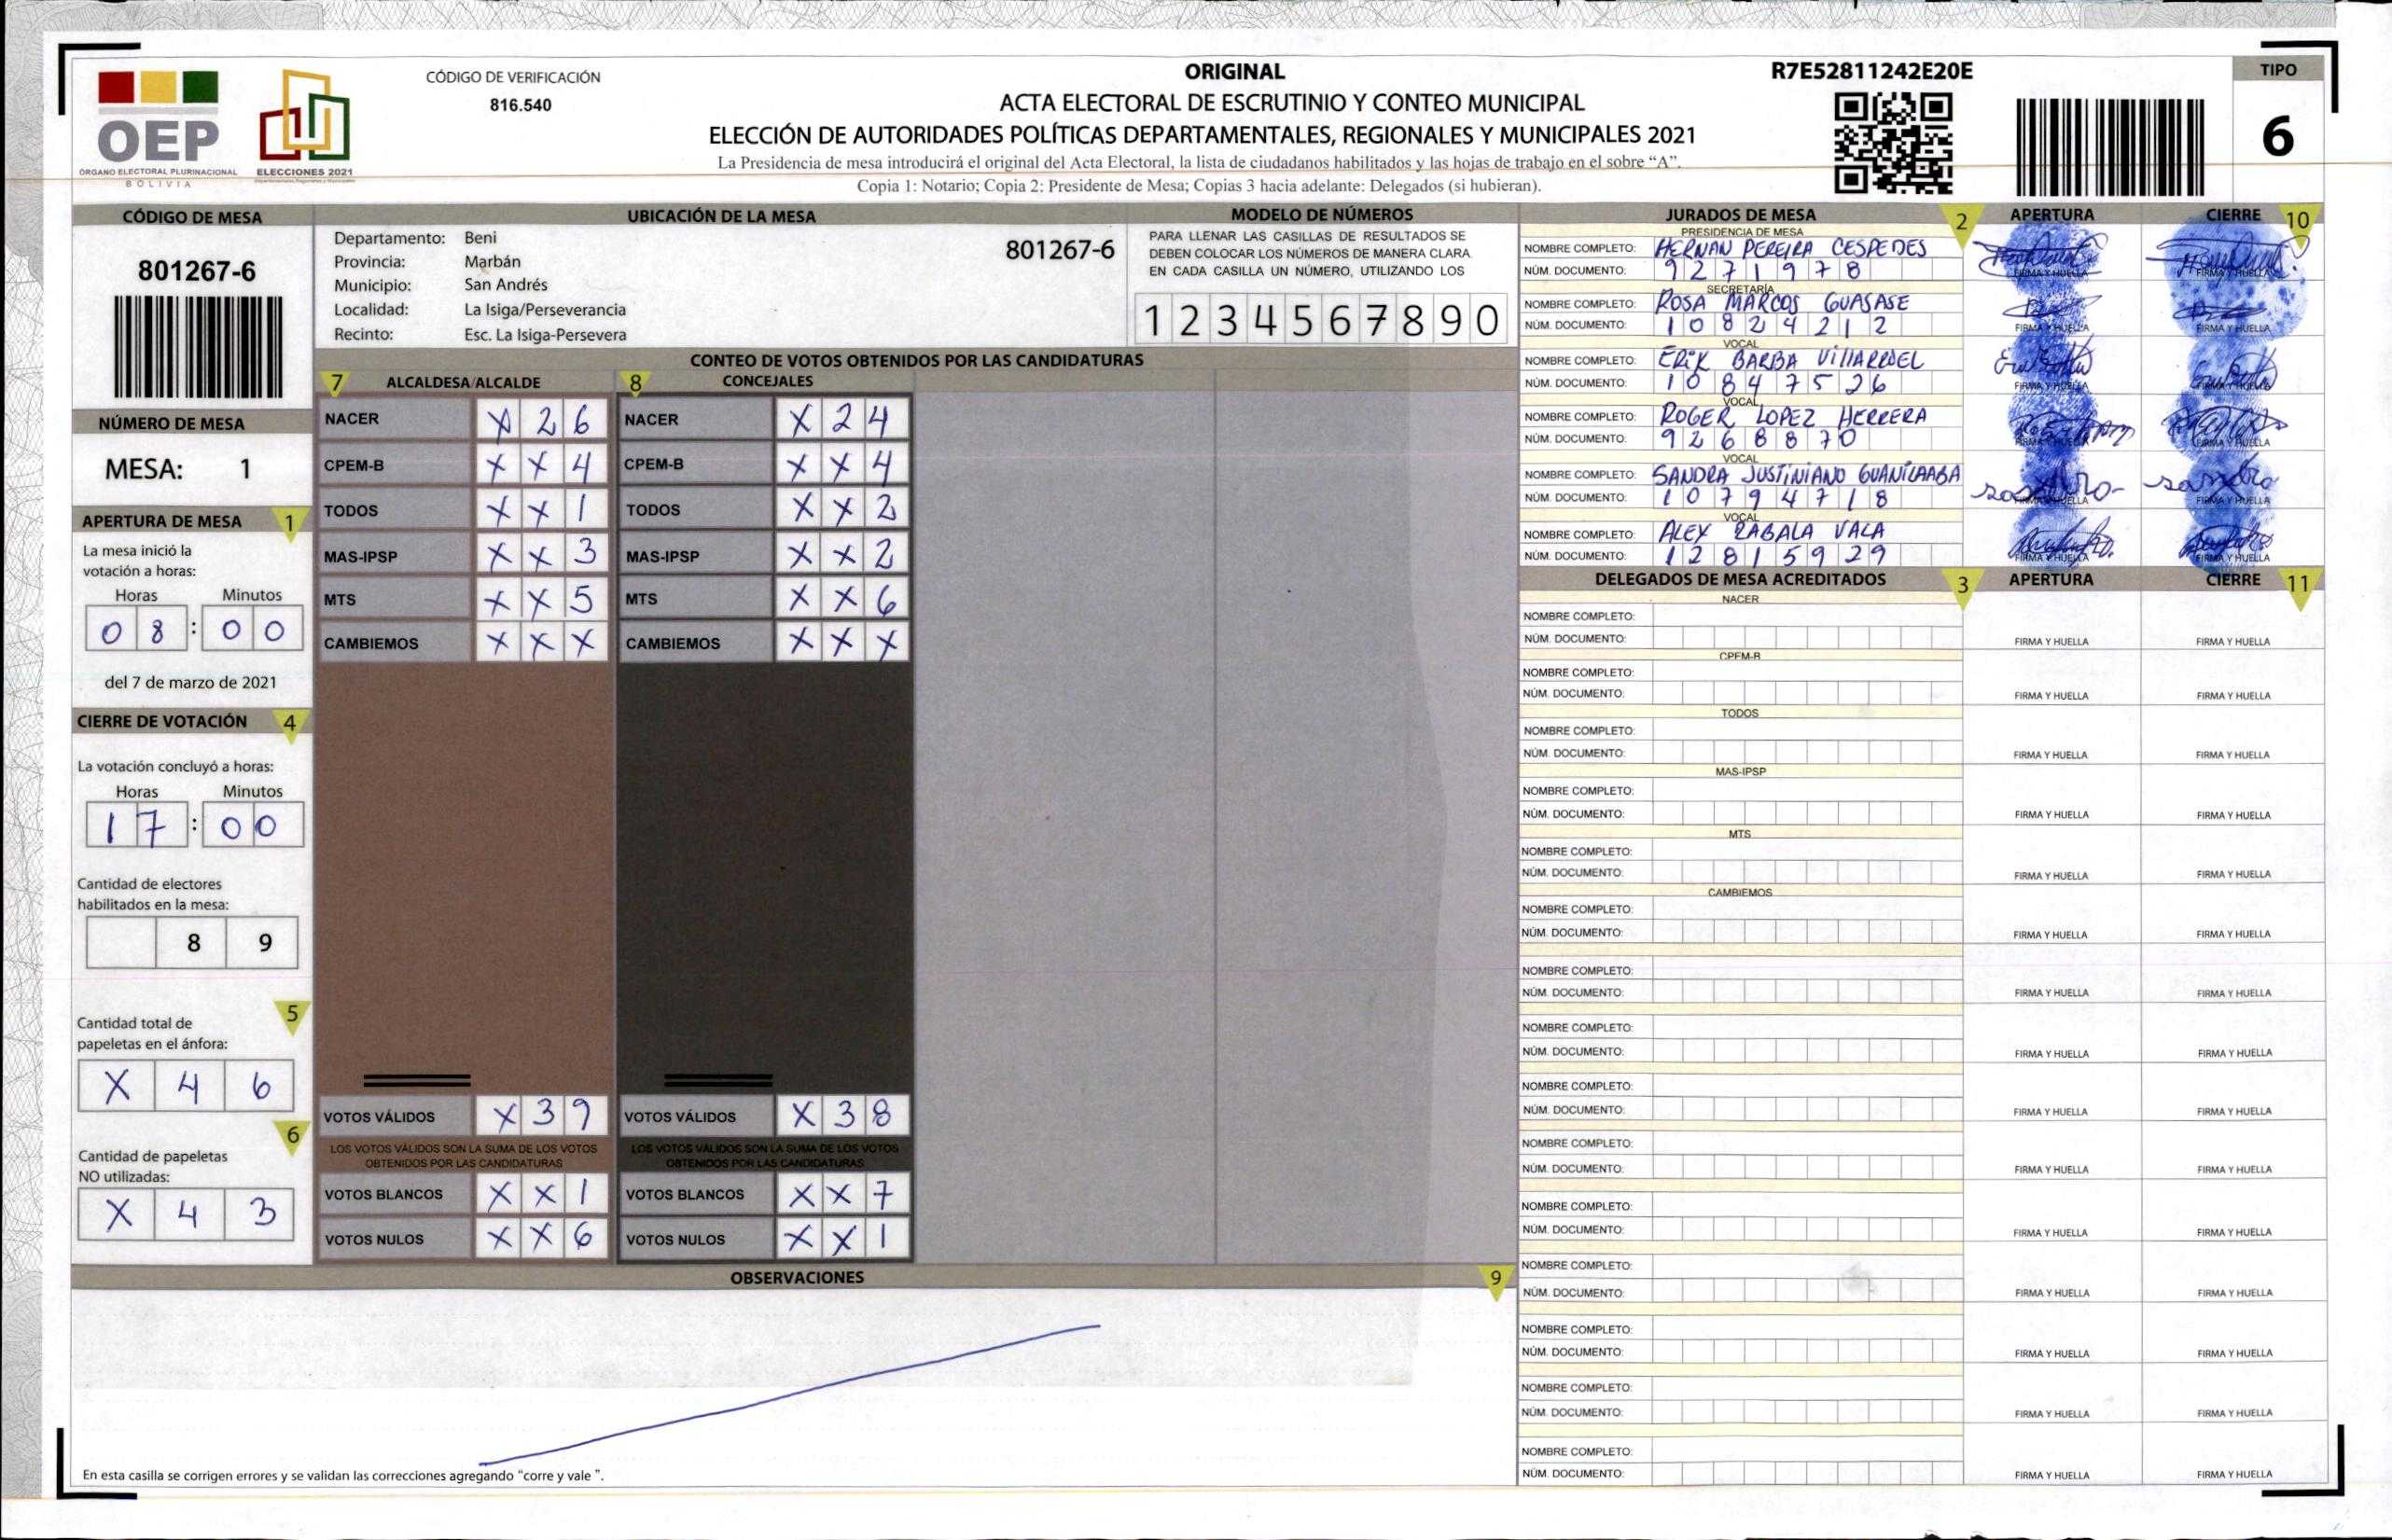 CÓDIGO DE VERIFICACIÓN
816.540
OEP
ÓRGANO ELECTORAL PLURINACIONAL
BOLIVIA
ELECCIONES 2021
ORIGINAL
ACTA ELECTORAL DE ESCRUTINIO Y CONTEO MUNICIPAL
ELECCIÓN DE AUTORIDADES POLÍTICAS DEPARTAMENTALES, REGIONALES Y MUNICIPALES 2021
La Presidencia de mesa introducirá el original del Acta Electoral, la lista de ciudadanos habilitados y las hojas de trabajo en el sobre “A”.
Copia 1: Notario; Copia 2: Presidente de Mesa; Copias 3 hacia adelante: Delegados (si hubieran).
R7E52811242E20E
TIPO
6
CÓDIGO DE MESA
801267-6
NÚMERO DE MESA
MESA: 1
APERTURA DE MESA 1
La mesa inició la
votación a horas:
Horas Minutos
0 8 : 0 0
del 7 de marzo de 2021
CIERRE DE VOTACIÓN 4
La votación concluyó a horas:
Horas Minutos
1 7 : 0 0
Cantidad de electores
habilitados en la mesa:
8 9
5
Cantidad total de
papeletas en el ánfora:
X 4 6
6
Cantidad de papeletas
NO utilizadas:
X 4 3
UBICACIÓN DE LA MESA
Departamento: Beni
Provincia: Marbán
Municipio: San Andrés
Localidad: La Isiga/Perseverancia
Recinto: Esc. La Isiga-Persevera
801267-6
MODELO DE NÚMEROS
PARA LLENAR LAS CASILLAS DE RESULTADOS SE
DEBEN COLOCAR LOS NÚMEROS DE MANERA CLARA
EN CADA CASILLA UN NÚMERO, UTILIZANDO LOS
1 2 3 4 5 6 7 8 9 0
CONTEO DE VOTOS OBTENIDOS POR LAS CANDIDATURAS
7 ALCALDESA/ALCALDE 8 CONCEJALES
NACER X 2 6 NACER X 2 4
CPEM-B X X 4 CPEM-B X X 4
TODOS X X 1 TODOS X X 2
MAS-IPSP X X 3 MAS-IPSP X X 2
MTS X X 5 MTS X X 6
CAMBIEMOS X X X CAMBIEMOS X X X
VOTOS VÁLIDOS X 3 9 VOTOS VÁLIDOS X 3 8
LOS VOTOS VÁLIDOS SON LA SUMA DE LOS VOTOS LOS VOTOS VÁLIDOS SON LA SUMA DE LOS VOTOS
OBTENIDOS POR LAS CANDIDATURAS OBTENIDOS POR LAS CANDIDATURAS
VOTOS BLANCOS X X 1 VOTOS BLANCOS X X 7
VOTOS NULOS X X 6 VOTOS NULOS X X 1
OBSERVACIONES 9
En esta casilla se corrigen errores y se validan las correcciones agregando “corre y vale ”.
JURADOS DE MESA 2 APERTURA CIERRE 10
PRESIDENCIA DE MESA
NOMBRE COMPLETO: HERNAN PEREIRA CESPEDES
NÚM. DOCUMENTO: 9 2 7 1 9 7 8 FIRMA Y HUELLA FIRMA Y HUELLA
SECRETARÍA
NOMBRE COMPLETO: ROSA MARCOS GUASASE
NÚM. DOCUMENTO: 1 0 8 2 4 2 1 2 FIRMA Y HUELLA FIRMA Y HUELLA
VOCAL
NOMBRE COMPLETO: ERIK BARBA VILLARROEL
NÚM. DOCUMENTO: 1 0 8 4 7 5 2 6 FIRMA Y HUELLA FIRMA Y HUELLA
VOCAL
NOMBRE COMPLETO: ROGER LOPEZ HERRERA
NÚM. DOCUMENTO: 9 2 6 8 8 7 0 FIRMA Y HUELLA FIRMA Y HUELLA
VOCAL
NOMBRE COMPLETO: SANDRA JUSTINIANO
NÚM. DOCUMENTO: 1 0 7 9 4 7 1 8 FIRMA Y HUELLA sandra FIRMA Y HUELLA
VOCAL
NOMBRE COMPLETO: ALEX RABALA VACA
NÚM. DOCUMENTO: 1 2 8 1 5 9 2 9 FIRMA Y HUELLA FIRMA Y HUELLA
DELEGADOS DE MESA ACREDITADOS 3 APERTURA CIERRE 11
NACER
NOMBRE COMPLETO:
NÚM. DOCUMENTO: FIRMA Y HUELLA FIRMA Y HUELLA
CPEM-B
NOMBRE COMPLETO:
NÚM. DOCUMENTO: FIRMA Y HUELLA FIRMA Y HUELLA
TODOS
NOMBRE COMPLETO:
NÚM. DOCUMENTO: FIRMA Y HUELLA FIRMA Y HUELLA
MAS-IPSP
NOMBRE COMPLETO:
NÚM. DOCUMENTO: FIRMA Y HUELLA FIRMA Y HUELLA
MTS
NOMBRE COMPLETO:
NÚM. DOCUMENTO: FIRMA Y HUELLA FIRMA Y HUELLA
CAMBIEMOS
NOMBRE COMPLETO:
NÚM. DOCUMENTO: FIRMA Y HUELLA FIRMA Y HUELLA
NOMBRE COMPLETO:
NÚM. DOCUMENTO: FIRMA Y HUELLA FIRMA Y HUELLA
NOMBRE COMPLETO:
NÚM. DOCUMENTO: FIRMA Y HUELLA FIRMA Y HUELLA
NOMBRE COMPLETO:
NÚM. DOCUMENTO: FIRMA Y HUELLA FIRMA Y HUELLA
NOMBRE COMPLETO:
NÚM. DOCUMENTO: FIRMA Y HUELLA FIRMA Y HUELLA
NOMBRE COMPLETO:
NÚM. DOCUMENTO: FIRMA Y HUELLA FIRMA Y HUELLA
NOMBRE COMPLETO:
NÚM. DOCUMENTO: FIRMA Y HUELLA FIRMA Y HUELLA
NOMBRE COMPLETO:
NÚM. DOCUMENTO: FIRMA Y HUELLA FIRMA Y HUELLA
NOMBRE COMPLETO:
NÚM. DOCUMENTO: FIRMA Y HUELLA FIRMA Y HUELLA
NOMBRE COMPLETO:
NÚM. DOCUMENTO: FIRMA Y HUELLA FIRMA Y HUELLA